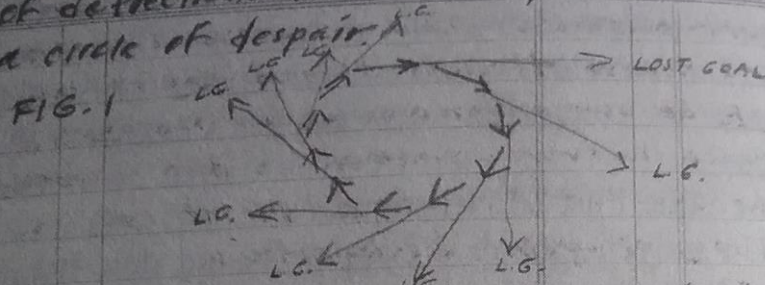 of
a circle of despair.
L.G.
LG
LG
LG
FIG. 1
LOST GOAL
L.G.
L.G.
L.G.
L.G.